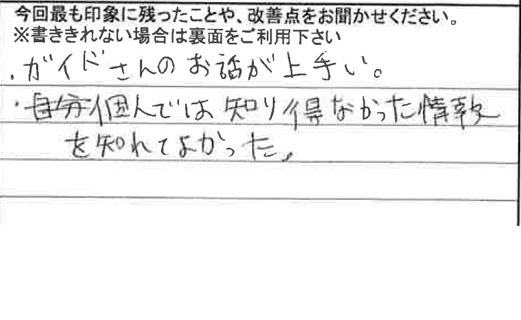 今回最も印象に残ったことや、改善点をお聞かせください。
※書ききれない場合は裏面をご利用下さい
・ガイドさんのお話が上手い。
・自分個人では知り得なかった情報
を知れてよかった。